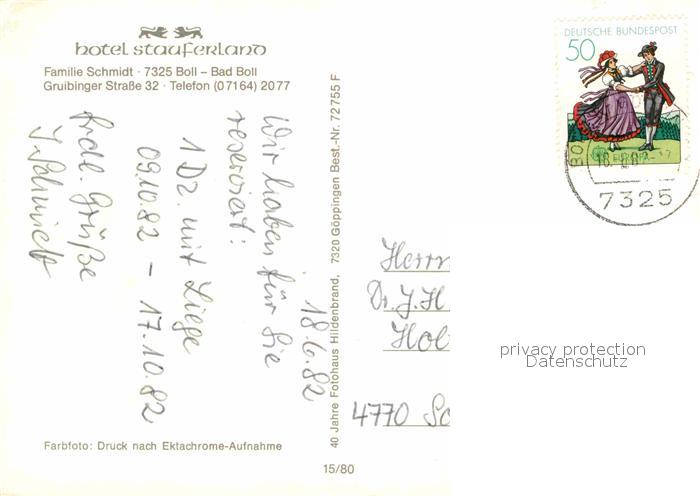 hotel stauferland
Familie Schmidt · 7325 Boll – Bad Boll
Gruibinger Straße 32 · Telefon (07164) 2077
18.6.82
Wir haben für Sie
reserviert:
1 Dz. mit Liege
09.10.82 – 17.10.82
frdl. Grüße
J. Schmidt
Farbfoto: Druck nach Ektachrome-Aufnahme
40 Jahre Fotohaus Hildenbrand, 7320 Göppingen Best.-Nr. 72755 F
15/80
DEUTSCHE BUNDESPOST
50
EUROPA
BO
7325
Herrn
Dr. J. H
Hol
4770 So
privacy protection
Datenschutz